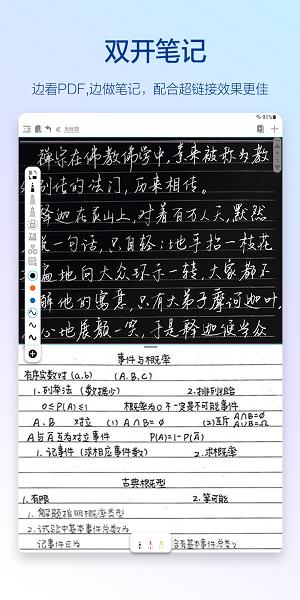 双开笔记
边看PDF,边做笔记，配合超链接效果更佳
91%
无标题
禅宗在佛教佛学中,素来被称为教
别传的法门,历来相传。
释迦在灵山上,对着百万人天,默然
一句话,只自轻地手拈一枝花
遍地向大众环示一转,大家都不
解他的寓意,只有大弟子摩诃迦叶,
心地展颜一笑,于是释迦便当众
事件与概率
有序实数对(a,b) (A.B.C)
1.列举法(数据少) 2.排列组合
0≤P(A)≤1 概率为0不一定是不可能事件
A、B 对立 (1) A∩B=Φ (2)互斥 A∩B=Φ A∪B=Ω
A与Ā互为对立事件 P(A)=1-P(Ā)
1.记事件(求相应事件数) 2.求概率
古典概型
1.有限 2.等可能
1.解题指明概率类型
2.试验中基本事件总数为
记事件E为 含有基本事件总数